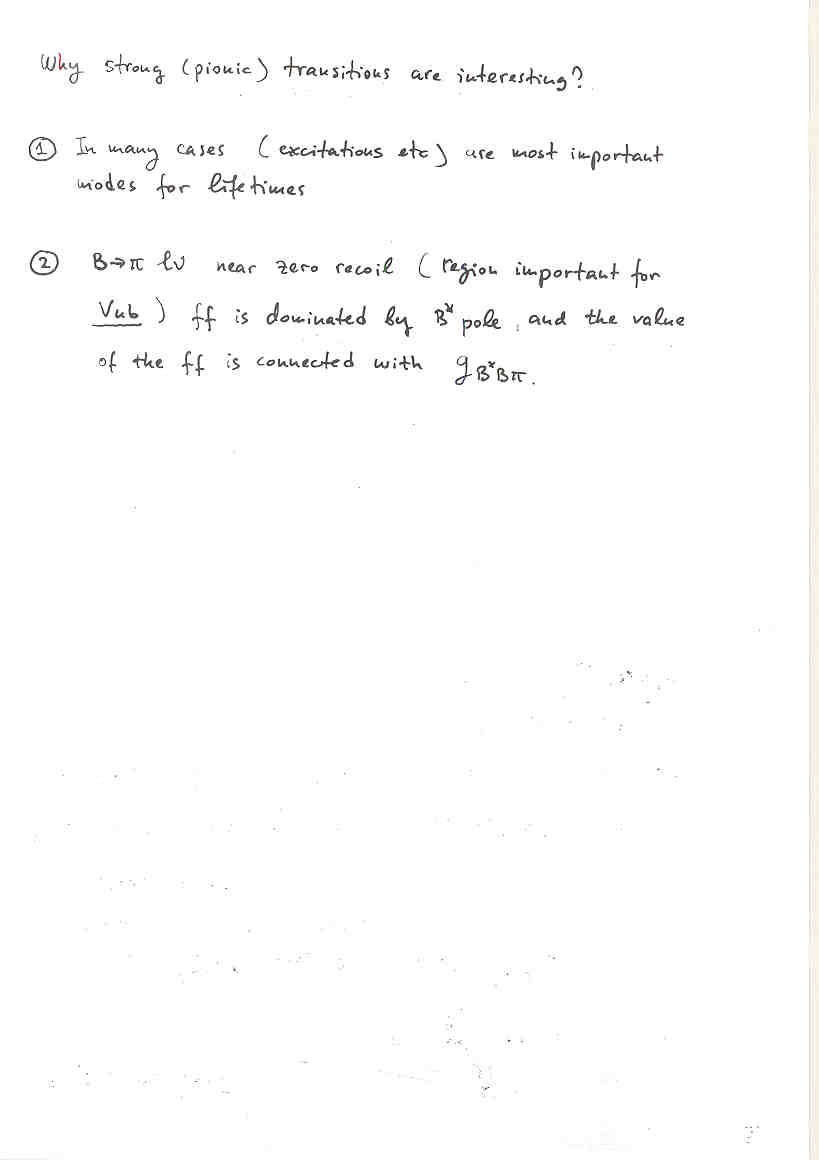 Why strong (pionic) transitions are interesting?
① In many cases (excitations etc) are most important
modes for lifetimes
② B→π lν near zero recoil (region important for
Vub) ff is dominated by B* pole, and the value
of the ff is connected with g_B*Bπ.